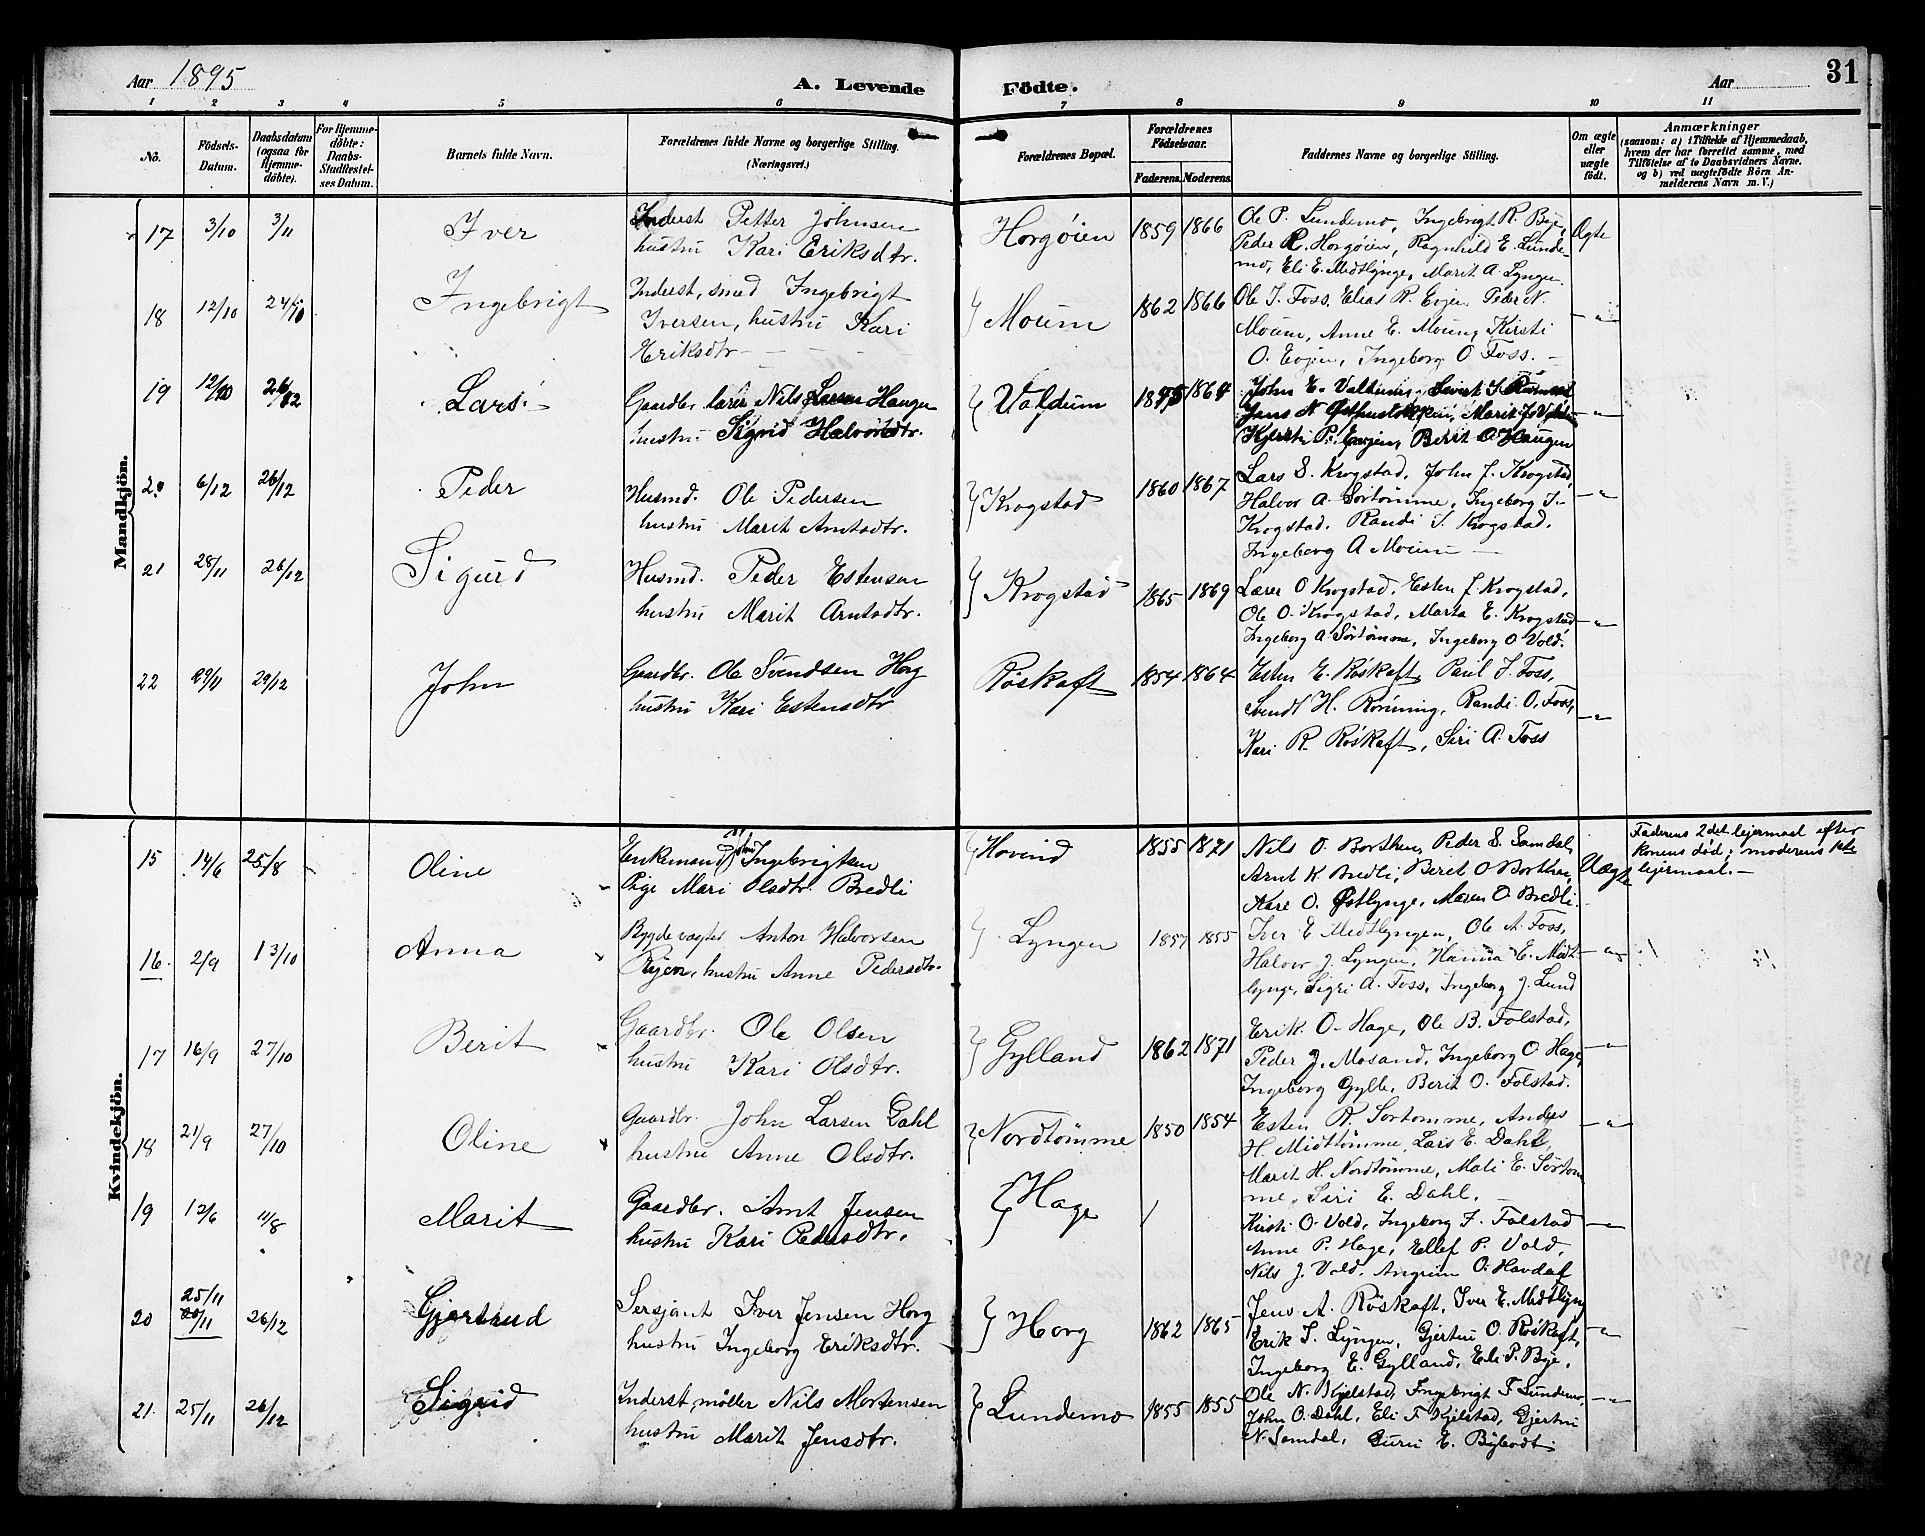 Aar 1895
A. Levende Födte.
Aar
31
1 2 3 4 5 6 7 8 9 10 11
No.
Födsels-Datum.
Daabsdatum (ogsaa for Hjemme-döbte).
For Hjemme-döbte: Daabs-Stadfæstel-ses Datum.
Barnets fulde Navn.
Forældrenes fulde Navne og borgerlige Stilling. (Næringsvei.)
Forældrenes Bopæl.
Forældrenes Födselsaar.
Faderens. Moderens.
Faddernes Navne og borgerlige Stilling.
Om ægte eller uægte födt.
Anmærkninger
(saasom: a) i Tilfælde af Hjemmedaab, hvem der har forrettet samme, med Tilföielse af to Daabsvidners Navne. og b) ved uægtefödte Börn An-melderens Navn m. V.)
Mandkjön.
17 3/10 3/11 Iver Inderst Petter Johnsen Horgøien 1859 1866 Ole P. Lundemo, Ingebrigt R. Bye, Ægte
hustru Kari Eriksdtr. Peder R. Horgøien, Ragnhild E. Lunde-
mo, Eli E. Midtlynge, Marit A. Lyngen
18 12/10 24/10 Ingebrigt Inderst, smed Ingebrigt Moum 1862 1866 Ole I. Foss, Elias R. Evjen, Peder N.
Iversen, hustru Kari Moum, Anne E. Moum, Kirsti -"-
Eriksdtr O. Evjen, Ingeborg O Foss.
19 12/10 26/12 Lars Gaardbr. lærer Nils Larsen Haugen Valdum 1864 John E. Valdum,
hustru Sigrid Halvorsdtr. Jens N. Marit J. -"-
Kjersti P. Evjen, Berit O Haugen
20 6/12 26/12 Peder Husmd. Ole Pedersen Krogstad 1860 1867 Lars S. Krogstad, John J. Krogstad,
hustru Marit Arntsdtr. Halvor A. Sørtømme, Ingeborg I. -"-
Krogstad, Randi I. Krogstad,
Ingeborg A Moum
21 28/11 26/12 Sigurd Husmd. Peder Estensen Krogstad 1865 1869 Lærer O Krogstad, Esten J. Krogstad,
hustru Marit Arntsdtr. Ole O. Krogstad, Marta E. Krogstad -"-
Ingeborg A. Sørtømme, Ingeborg O Vold.
22 29/11 29/12 John Gaardbr. Ole Svendsen Horg Røskaft 1854 1864 Esten E. Røskaft, Paul I. Foss,
hustru Kari Estensdtr Svend H. Rønning, Randi O. Foss, -"-
Kari R. Røskaft, Siri A. Foss
Kvindekjön.
15 14/6 25/8 Oline Enkemand John Ingebrigtsen Hovind 1855 1871 Nils O. Borthen, Peder S. Samdal, Uægte Faderens 2det leiermaal efter
Pige Mari Olsdtr. Bredli Arnt K. Bredli, Beret O Borthen, konens død; moderens 1ste
Kare O. Østlynge, Maren O. Bredli. leiermaal.
16 2/9 13/10 Anna Bygdevægter Anton Halvorsen Lyngen 1857 1855 Iver E Midtlyngen, Ole A. Foss,
hustru Anne Pedersdtr. Halvor J. Lyngen, Hanna E. Midt- -"-
lynge, Sigri A. Foss, Ingeborg J. Lund
17 16/9 27/10 Berit Gaardbr. Ole Olsen Gylland 1862 1871 Erik O. Hage, Ole B. Folstad,
hustru Kari Olsdtr. Peder J. Mosand, Ingeborg O Hage, -"-
Ingeborg Gylle, Berit O. Folstad.
18 21/9 27/10 Oline Gaardbr. John Larsen Dahl Nordtømme 1850 1854 Esten R. Sørtømme, Anders -"-
hustru Anne Olsdtr. H. Midttømme, Lars E. Dahl,
Marit H. Nordtømme, Mali E. Sørtøm-
me, Siri E. Dahl.
19 12/6 11/8 Marit Gaardbr. Arnt Jensen Hage / Kirsti O. Vold, Ingeborg I. Folstad -"-
hustru Kari Pedersdtr. Anne P. Hage, Ellef P. Vold,
Nils J. Vold. Angrim O. Havdal
25/11
20 20/11 26/12 Gjertrud Sersjant Iver Jensen Horg Horg 1862 1865 Jens A. Røskaft, Iver E. Midtlyng
hustru Ingeborg Eriksdtr. Erik S. Lyngen, Gjertru O. Røskaft, -"-
Ingeborg E. Gylland, Eli P. Bye.
21. 25/11 26/12 Sigrid Inderst, møller Nils Mortensen Lundemo 1855 1855 Ole N. Kjelstad, Ingebrigt F Lundemo, -"-
hustru Marit Jensdtr. John O. Dahl, Eli F Kjelstad, Gjertru
N. Samdal, Guru E.